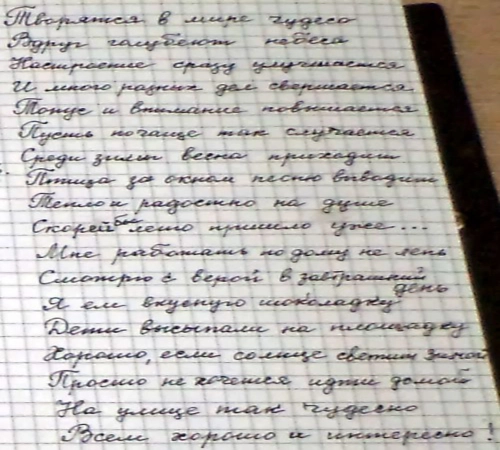 Творятся в мире чудеса
Вдруг голубеют небеса
Настроение сразу улучшается
И много разных дел свершается
Тонус и внимание повышается
Пусть почаще так случается
Среди зимы весна приходит
Птица за окном песню выводит
Тепло и радостно на душе
Скорей бы лето пришло уже ...
Мне работать по дому не лень
Смотрю с верой в завтрашний день
Я ем вкусную шоколадку
Дети высыпали на площадку
Хорошо, если солнце светит зимой
Просто не хочется идти домой
На улице так чудесно
Всем хорошо и интересно!